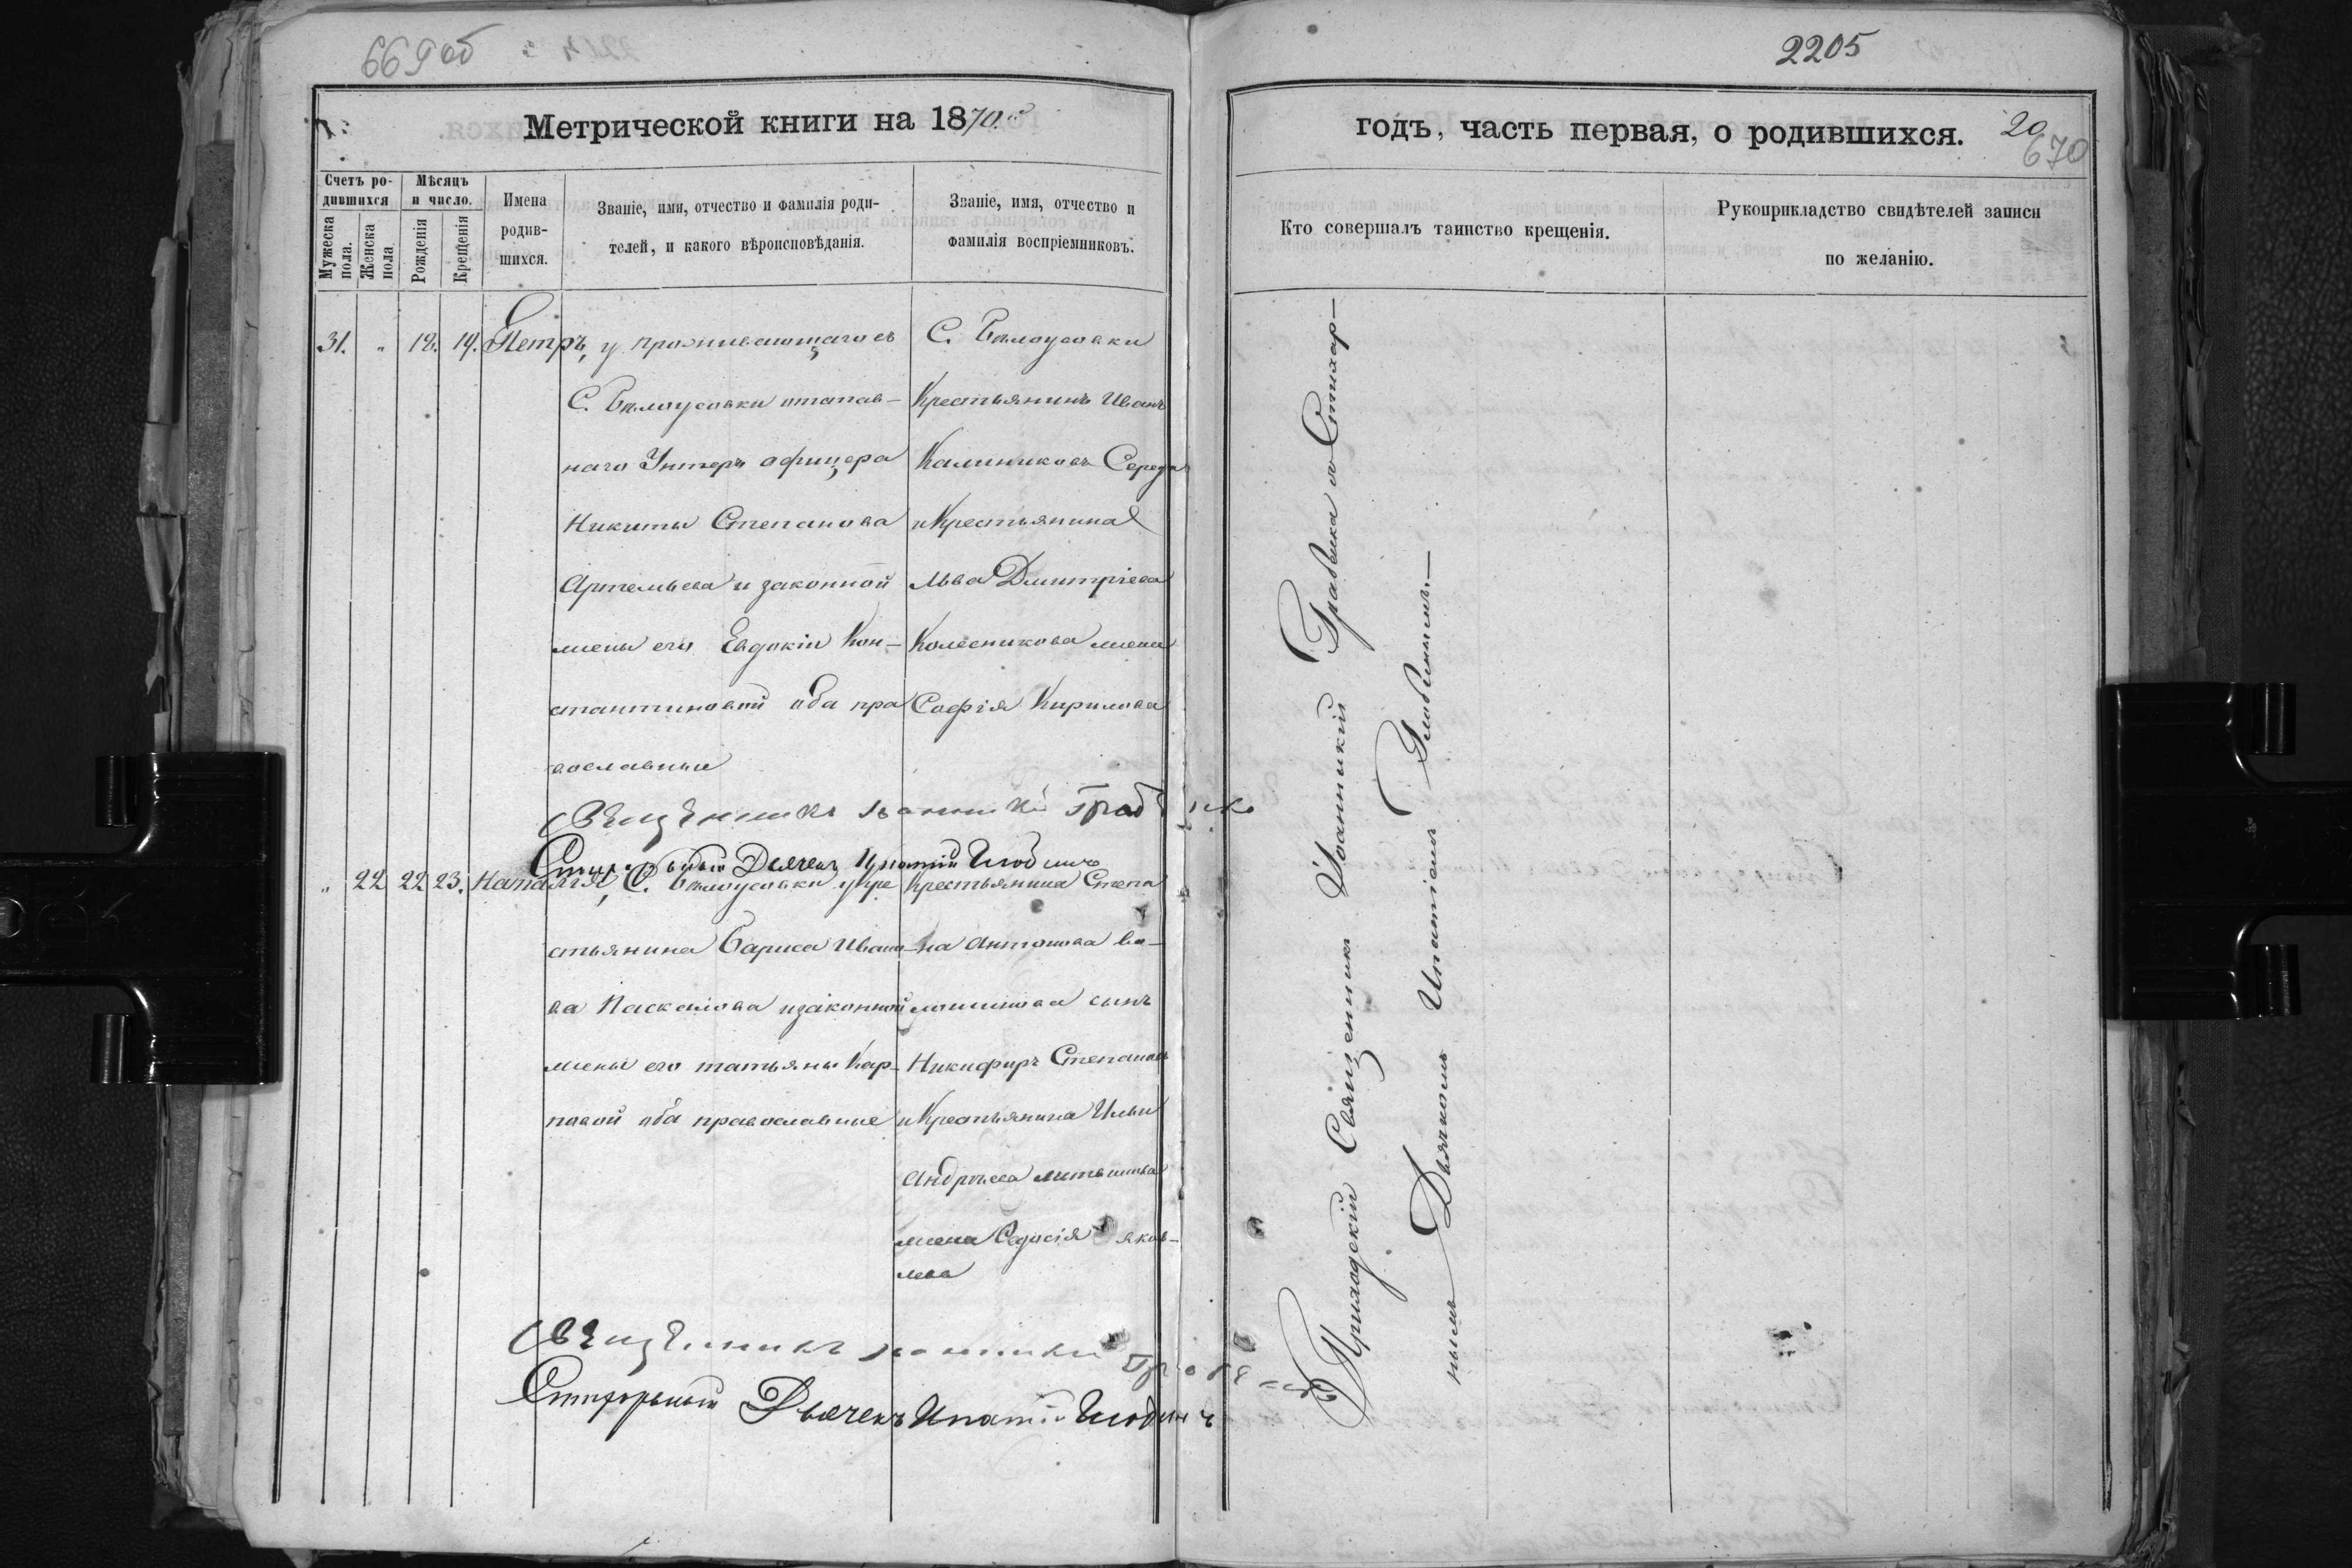 669об
2205
Метрической книги на 1870й
годъ, часть первая, о родившихся.
20
670
Счетъ ро-
дившихся
Мужеска пола.
Женска пола
Мѣсяцъ
и число.
Рожденія
Крещенія
Имена
родив-
шихся.
Званіе, имя, отчество и фамилія роди-
телей, и какого вѣроисповѣданія.
Званіе, имя, отчество и
фамилія воспріемниковъ.
Кто совершалъ таинство крещенія.
Рукоприкладство свидѣтелей записи
по желанію.
31. „ 18. 19. Петръ, у проживающаго въ
С. Бѣлоусовки отстав-
наго Унтеръ офицера
Никиты Степанова
Артемьева и законной
жены его Евдокіи Кон-
стантиновой оба пра
вославные
С. Бѣлоусовки
Крестьянинъ Иванъ
Калиниковъ Середа
и Крестьянина
Льва Дмитріева
Колесникова жена
Софія Кирилова
Священникъ Іоанникій Граб
Стихарный Дьячекъ Ипатій Глобинъ
„ 22 22 23. Наталія, С. Бѣлоусовки у кре
стьянина Бариса Ивано-
ва Паскалова и законной
жены его татьяны Кар-
повой оба православные
Крестьянина Степа
на Антонова
сынъ
Никифиръ Степановъ
и Крестьянина Ильи
Андрѣева
жена Федосія яков-
лева
Священникъ Іоанникій
Стихарный Дьячекъ Ипатій Глобинъ
Приходскій Священникъ Іоанникій Гравенка со Стихар-
нымъ Дьячкомъ Ипатіемъ Глобинымъ.-